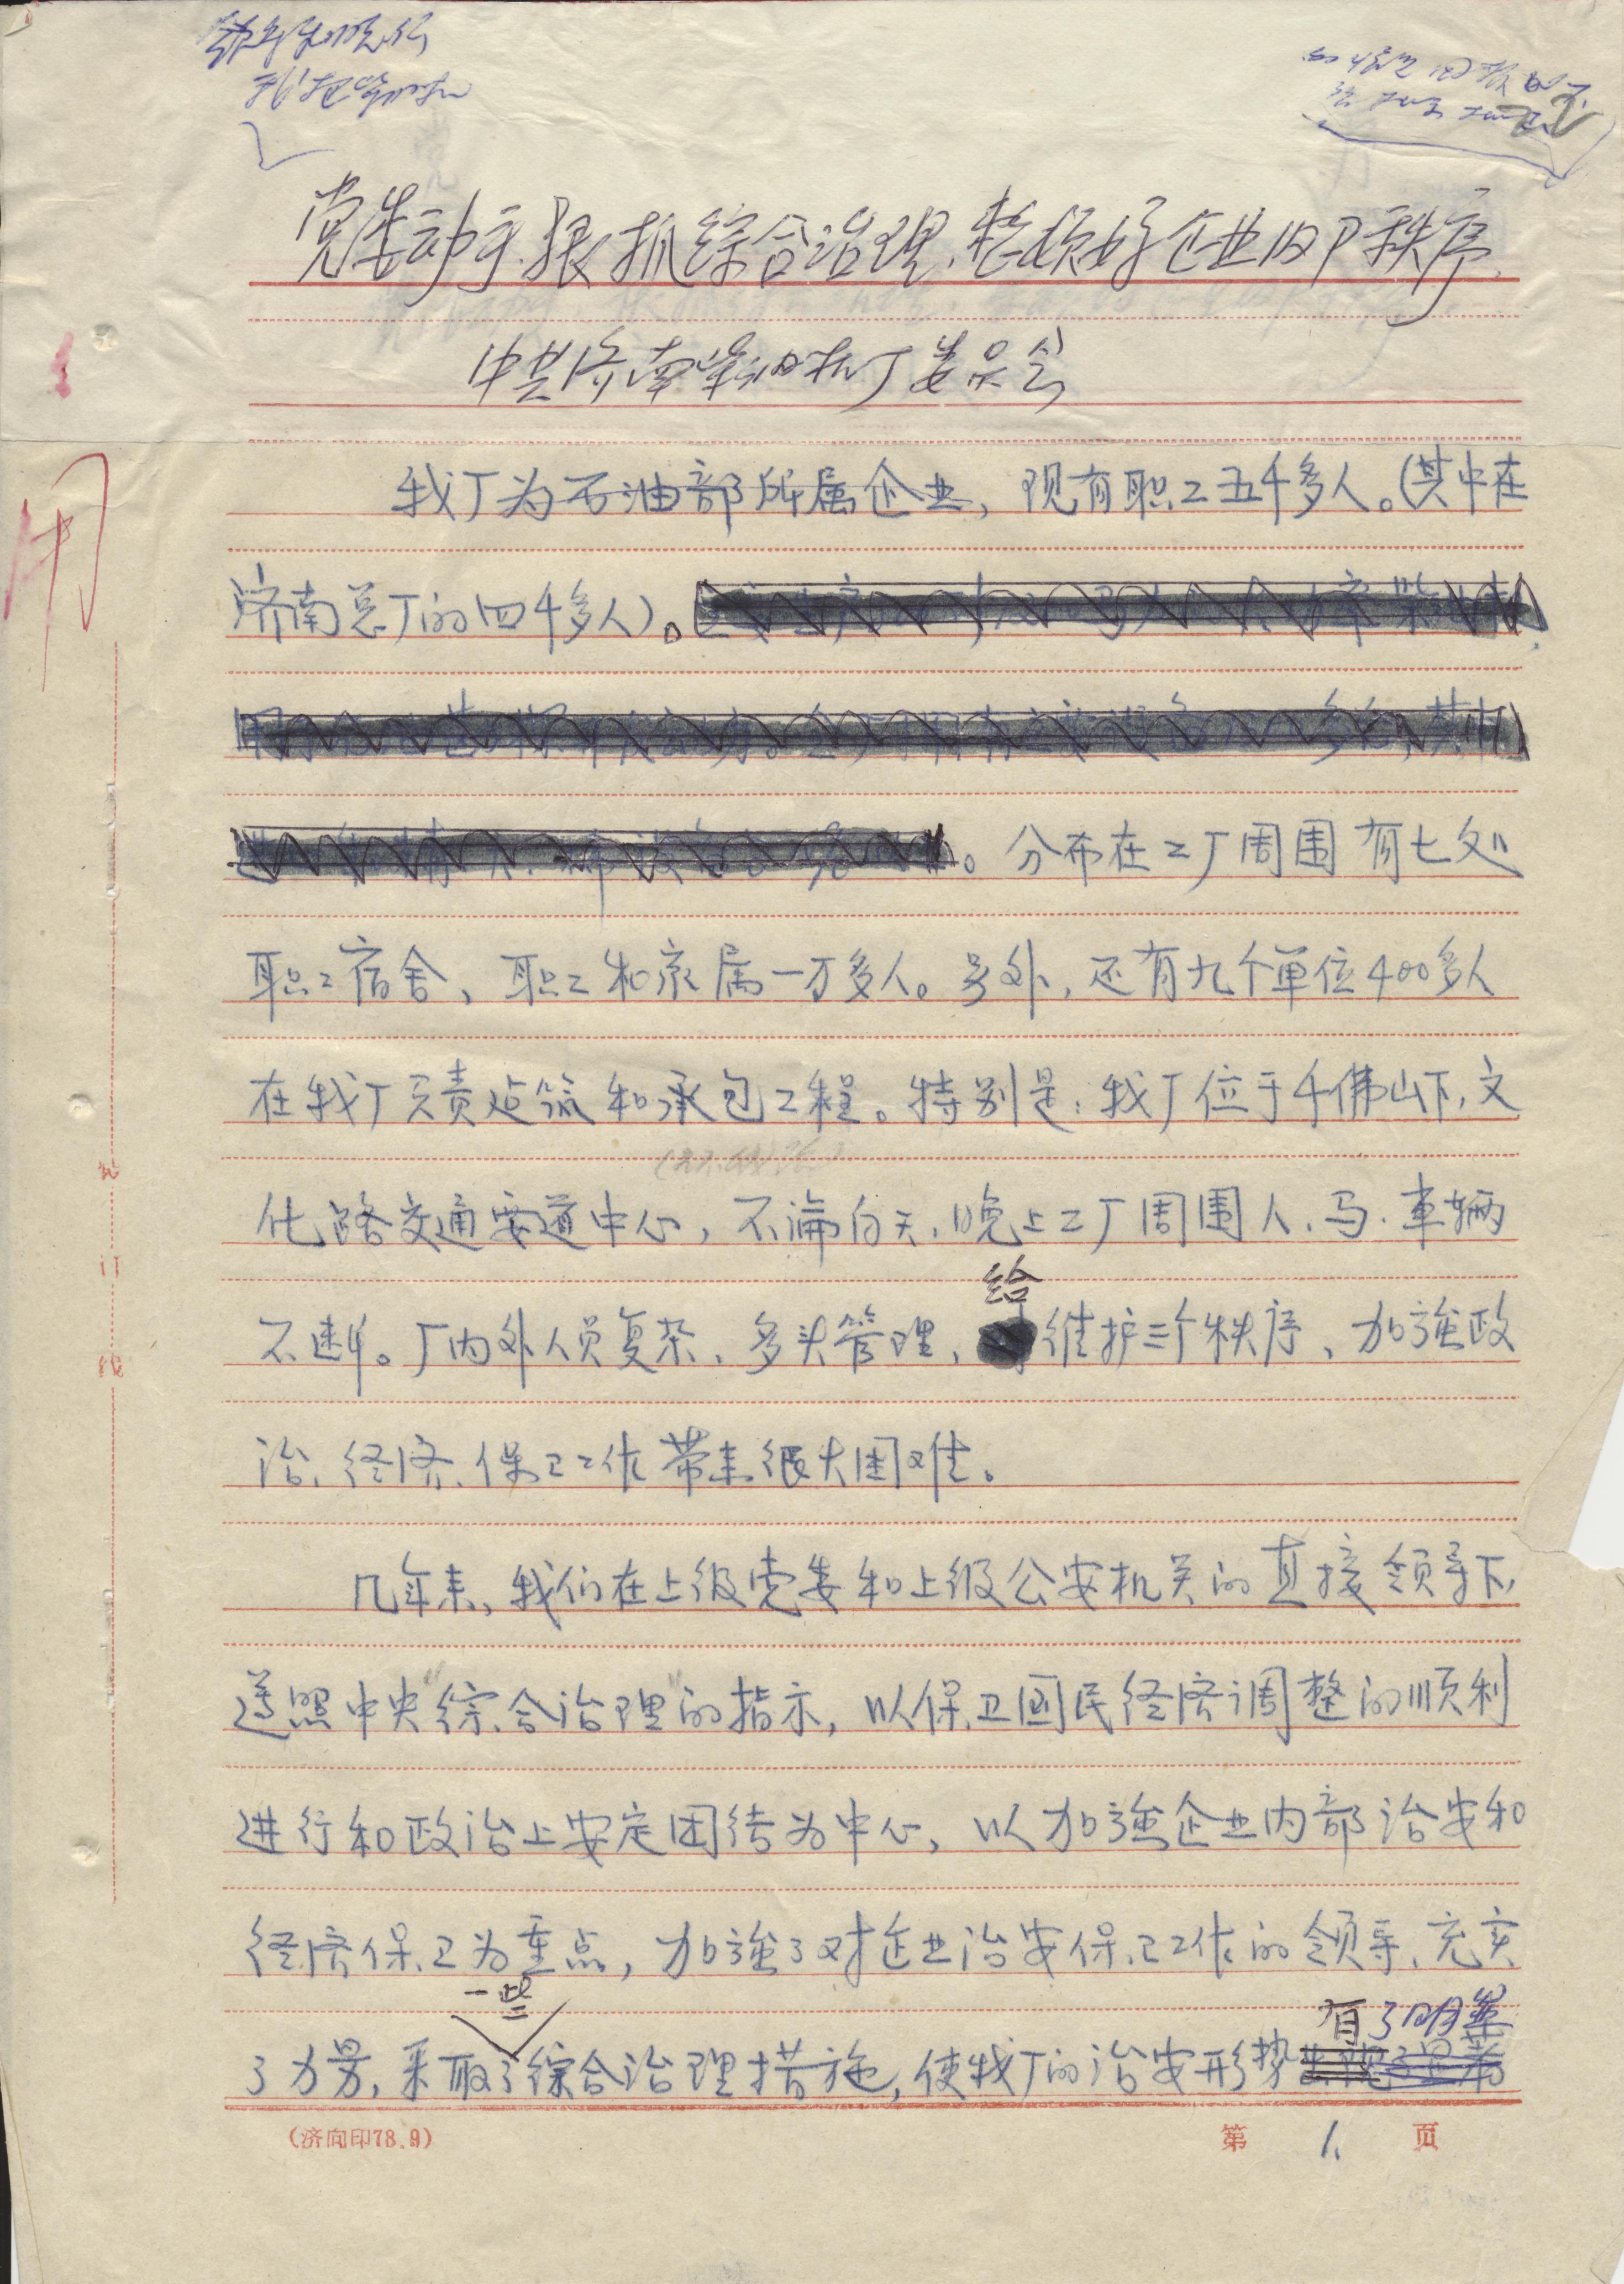 党委动手、狠抓综合治理、整顿好企业内部秩序
中共济南柴油机厂委员会
我厂为石油部所属企业，现有职工五千多人。(其中在
济南总厂的四千多人)。
。分布在工厂周围有七处
职工宿舍、职工和家属一万多人。另外，还有九个单位400多人
在我厂负责建筑和承包工程。特别是：我厂位于千佛山下，文
化路交通要道中心，不论白天、晚上工厂周围人、马、车辆
不断。厂内外人员复杂、多头管理、给维护三个秩序、加强政
治、经济、保卫工作带来很大困难。
几年来，我们在上级党委和上级公安机关的直接领导下，
遵照中央"综合治理"的指示，以保卫国民经济调整的顺利
进行和政治上安定团结为中心，以加强企业内部治安和
经济保卫为重点，加强了对企业治安保卫工作的领导、充实
了力量，采取了一些综合治理措施，使我厂的治安形势有了明显
用
装
订
线
(济向印78.9)
第 1. 页